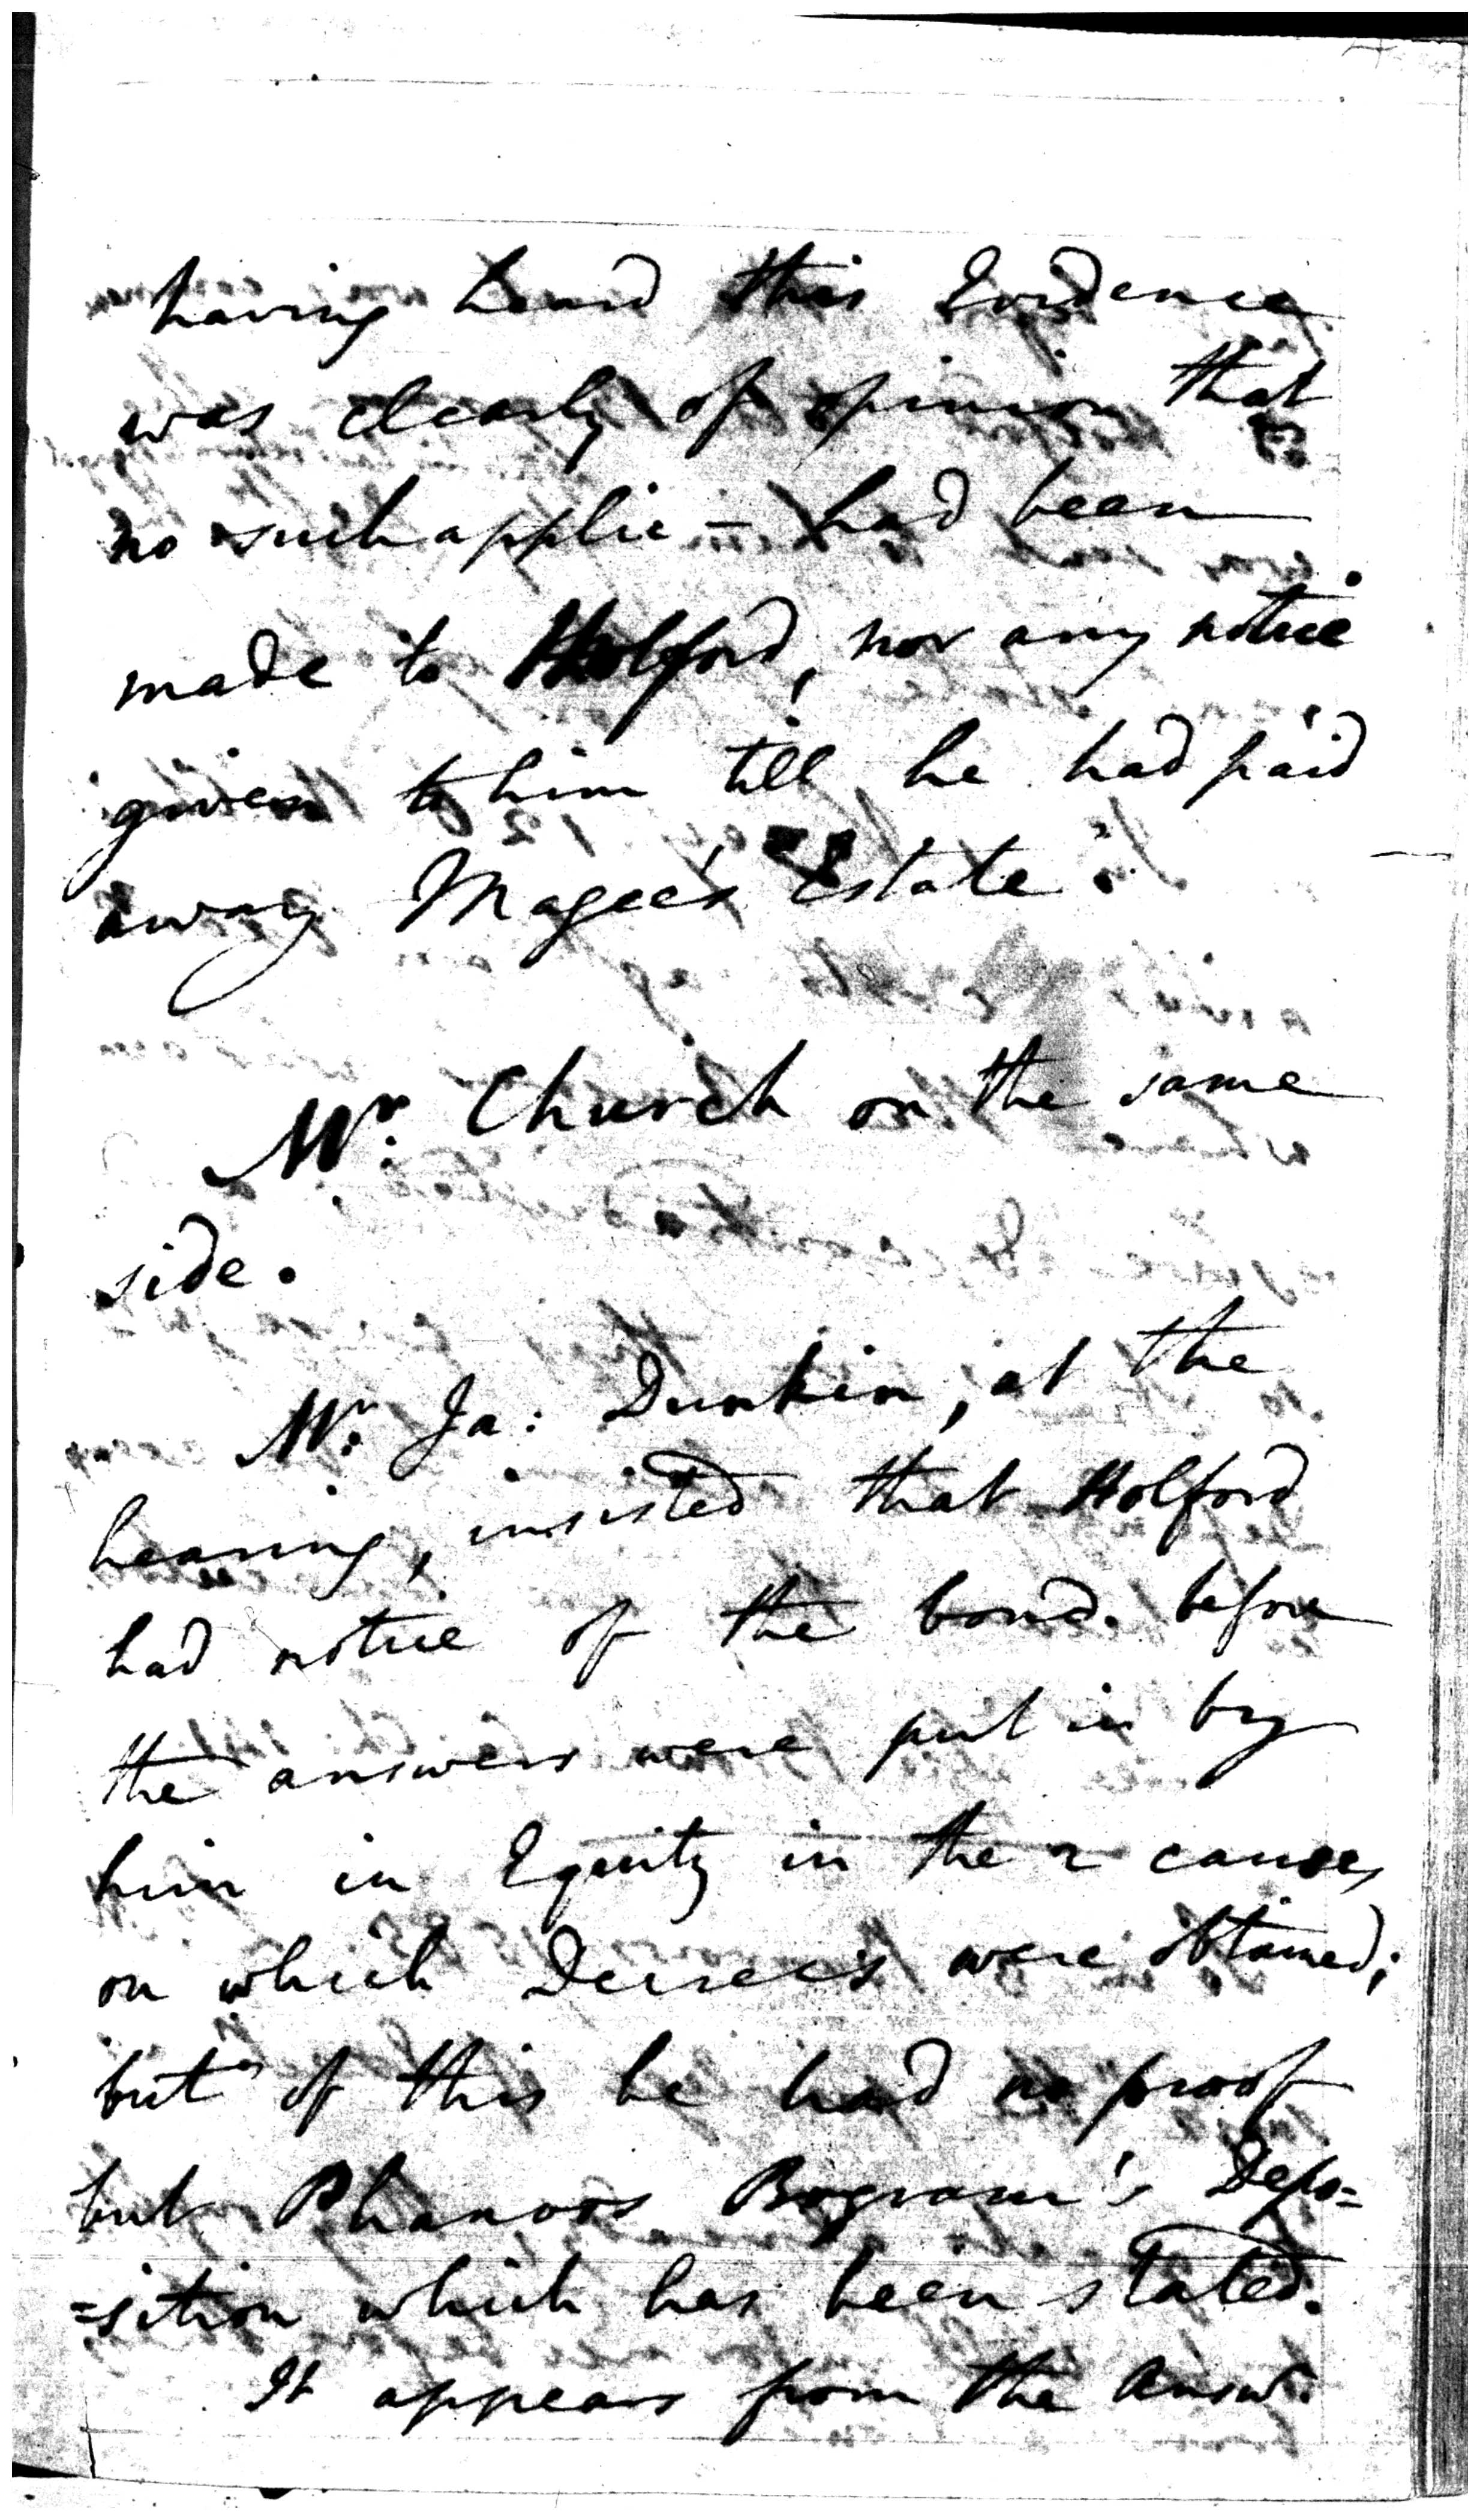 having heard this Evidence
was clearly of opinion that
no such applic- had been
made to Holford, nor any notice
given to him till he had paid
away Magee's Estate.
Mr. Church on the same
side.
Mr. Ja: Dunkin, at the
hearing, insisted that Holford
had notice of the bond. before
the answers were put in by
him in Equity in the 2 causes
on which Decrees were obtained;
but of this he had no proof
but Phanoos Bogram's Depo=
=sition which has been stated.
It appears from the Answ.